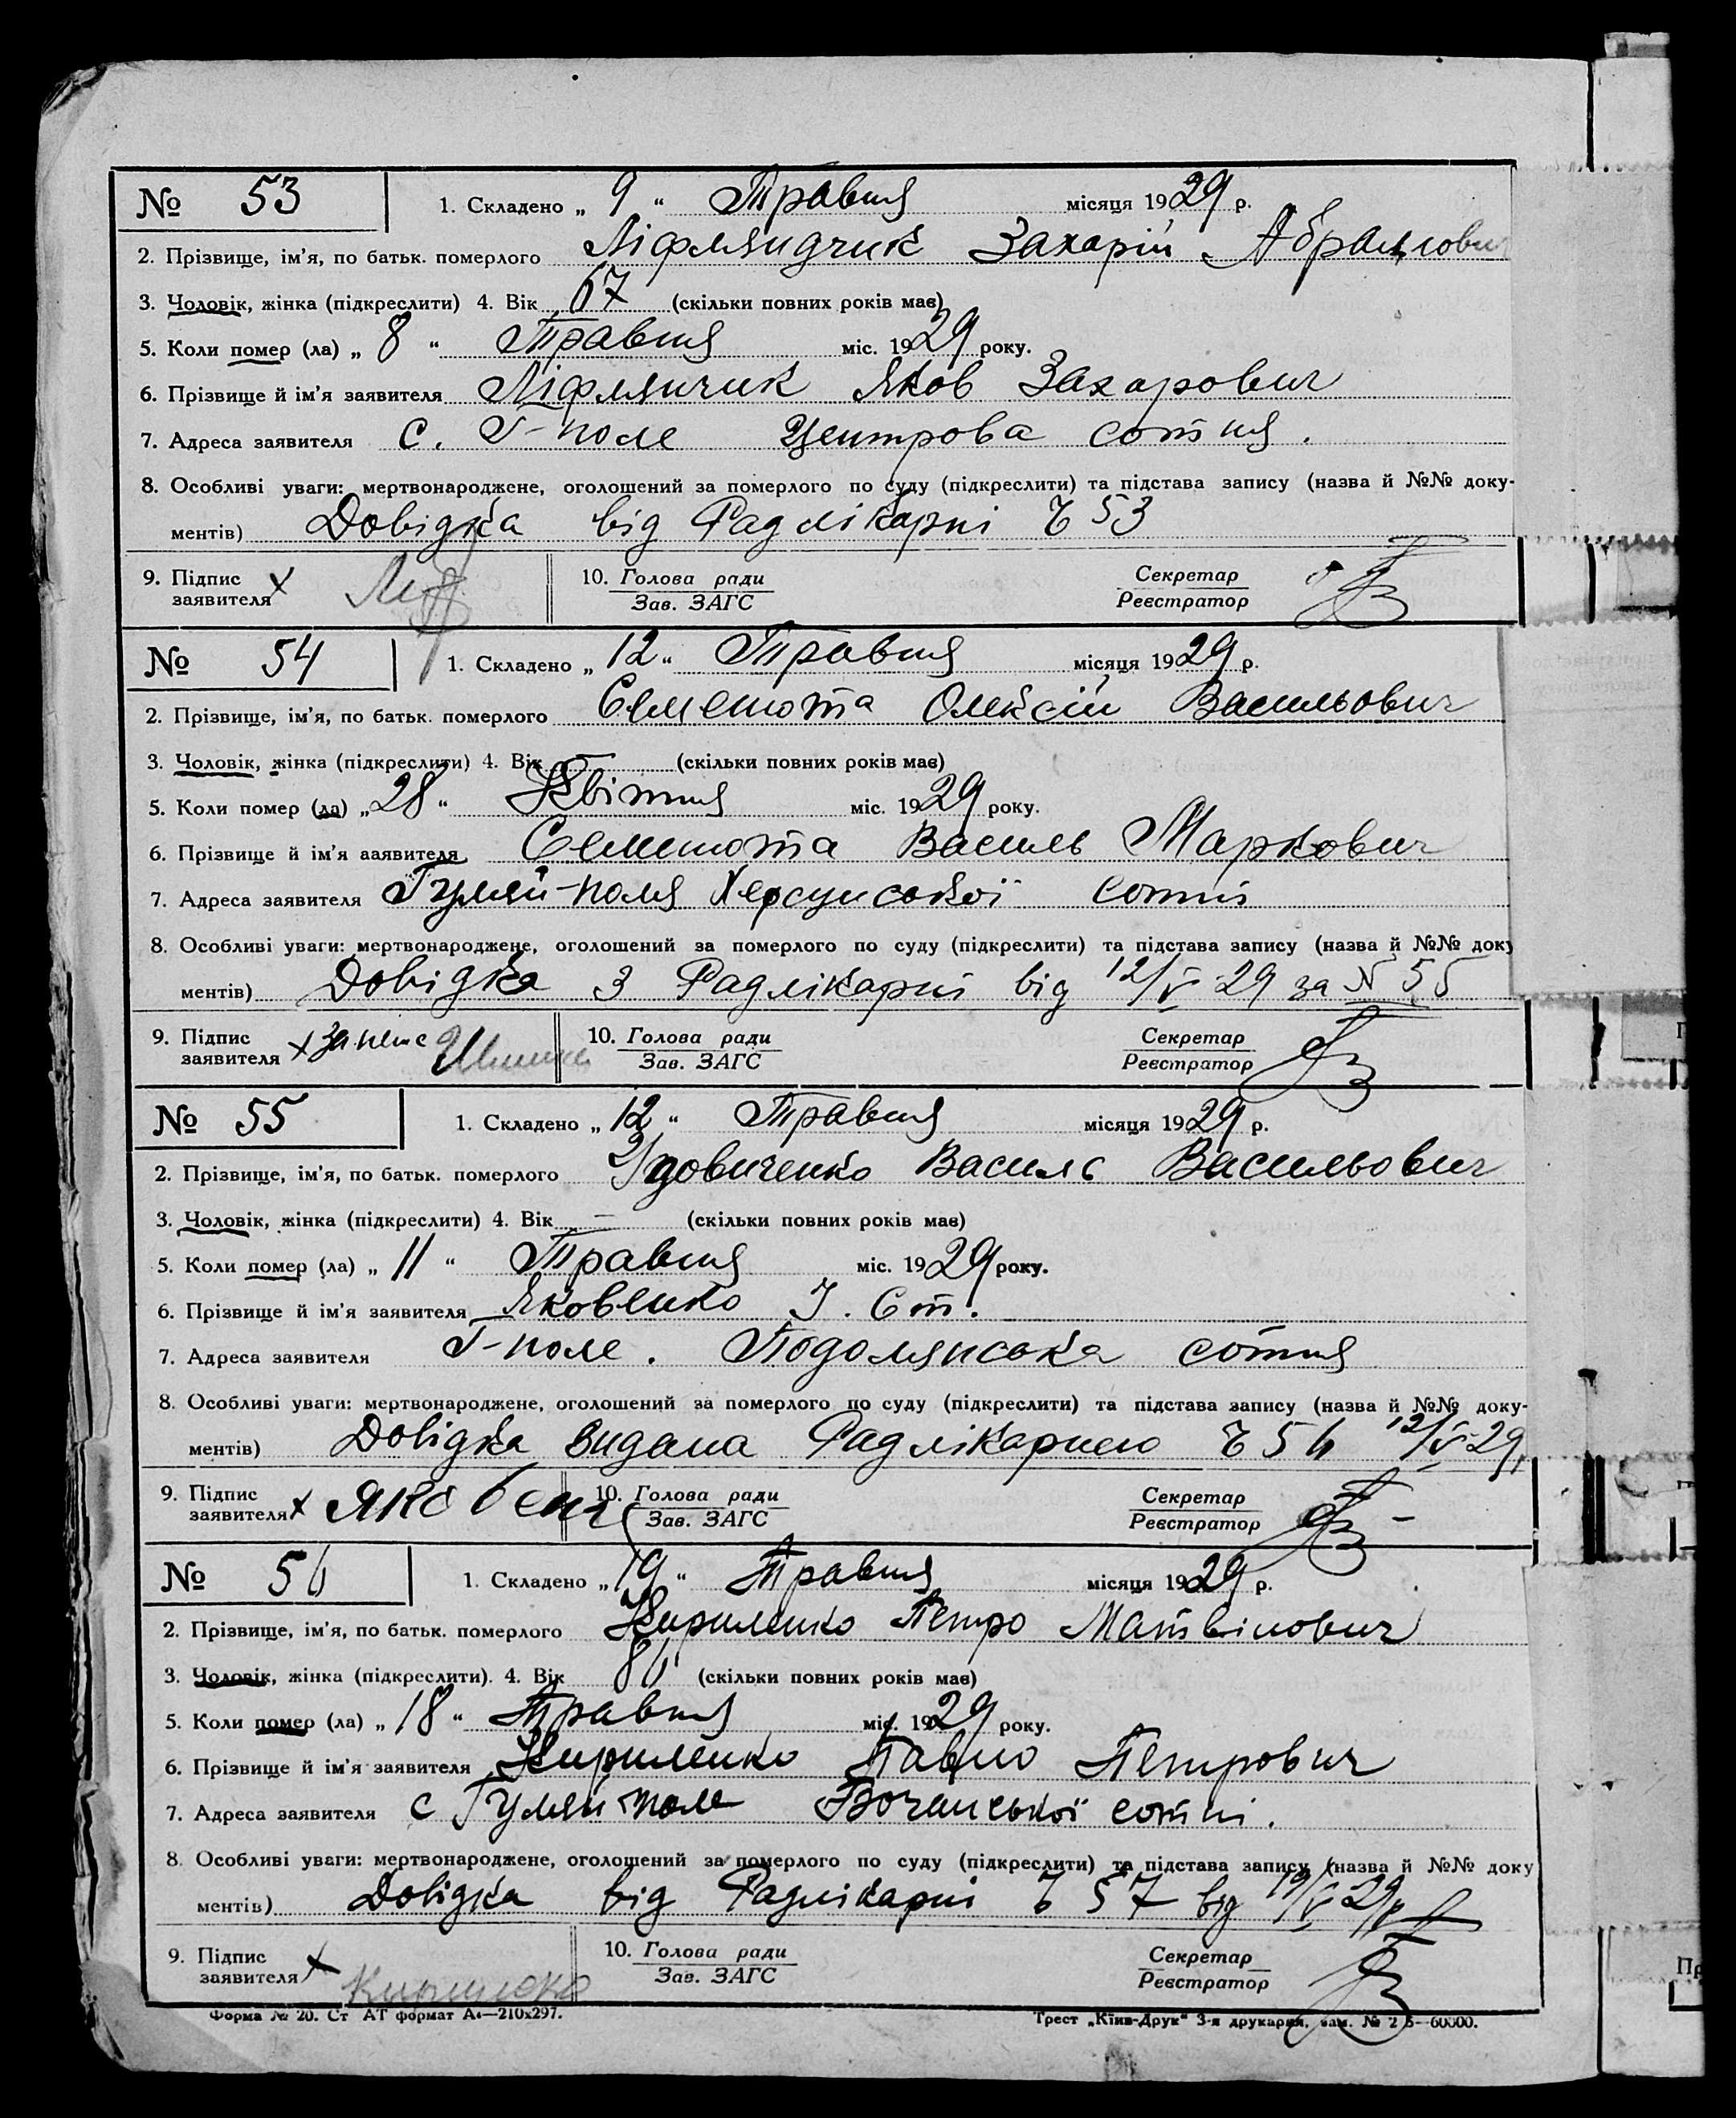 № 53 1. Складено „ 9 “ Травня місяця 1929 р.
2. Прізвище, ім'я, по батьк. померлого Ліфляндчик Захарій Абрамович
3. Чоловік, жінка (підкреслити) 4. Вік 67 (скільки повних років має)
5. Коли помер (ла) „ 8 “ Травня міс. 1929 року.
6. Прізвище й ім'я заявителя Ліфлянчик Яков Захарович
7. Адреса заявителя с. Г-поле Центрова сотня.
8. Особливі уваги: мертвонароджене, оголошений за померлого по суду (підкреслити) та підстава запису (назва й №№ доку-
ментів) Довідка від Радлікарні Ч 53
9. Підпис 10. Голова ради Секретар
заявителя х Зав. ЗАГС Реєстратор
№ 54 1. Складено „ 12 “ Травня місяця 1929 р.
2. Прізвище, ім'я, по батьк. померлого Семенота Олексій Васильович
3. Чоловік, жінка (підкреслити) 4. Вік — (скільки повних років має)
5. Коли помер (ла) „ 28 “ Квітня міс. 1929 року.
6. Прізвище й ім'я заявителя Семенота Василь Маркович
7. Адреса заявителя Гуляй-поля Херсунської сотні
8. Особливі уваги: мертвонароджене, оголошений за померлого по суду (підкреслити) та підстава запису (назва й №№ доку
ментів) Довідка з Радлікарні від 12/V 29 за N 55
9. Підпис 10. Голова ради Секретар
заявителя х за непис Зав. ЗАГС Реєстратор
№ 55 1. Складено „ 12 “ Травня місяця 1929 р.
2. Прізвище, ім'я, по батьк. померлого Удовиченко Василь Васильович
3. Чоловік, жінка (підкреслити) 4. Вік — (скільки повних років має)
5. Коли помер (ла) „ 11 “ Травня міс. 1929 року.
6. Прізвище й ім'я заявителя Яковенко І. Ст.
7. Адреса заявителя Г-поле. Подолянська сотня
8. Особливі уваги: мертвонароджене, оголошений за померлого по суду (підкреслити) та підстава запису (назва й №№ доку-
ментів) Довідка видана Радлікарнею Ч 54 12/V-29
9. Підпис 10. Голова ради Секретар
заявителя х Яковенк Зав. ЗАГС Реєстратор
№ 56 1. Складено „ 19 “ Травня місяця 1929 р.
2. Прізвище, ім'я, по батьк. померлого Кириленко Петро Матвійович
3. Чоловік, жінка (підкреслити). 4. Вік 86 (скільки повних років має)
5. Коли помер (ла) „ 18 “ Травня міс. 1929 року.
6. Прізвище й ім'я заявителя Кириленко Павло Петрович
7. Адреса заявителя с Гуляй поле Бочанської сотні.
8. Особливі уваги: мертвонароджене, оголошений за померлого по суду (підкреслити) та підстава запису (назва й №№ доку
ментів) Довідка від Радлікарні Ч 57 від 19/V 29 р
9. Підпис 10. Голова ради Секретар
заявителя х Зав. ЗАГС Реєстратор
Форма № 20. Ст АТ формат А4—210х297. Трест „Київ-Друк“ 3-я друкарня, зам. №